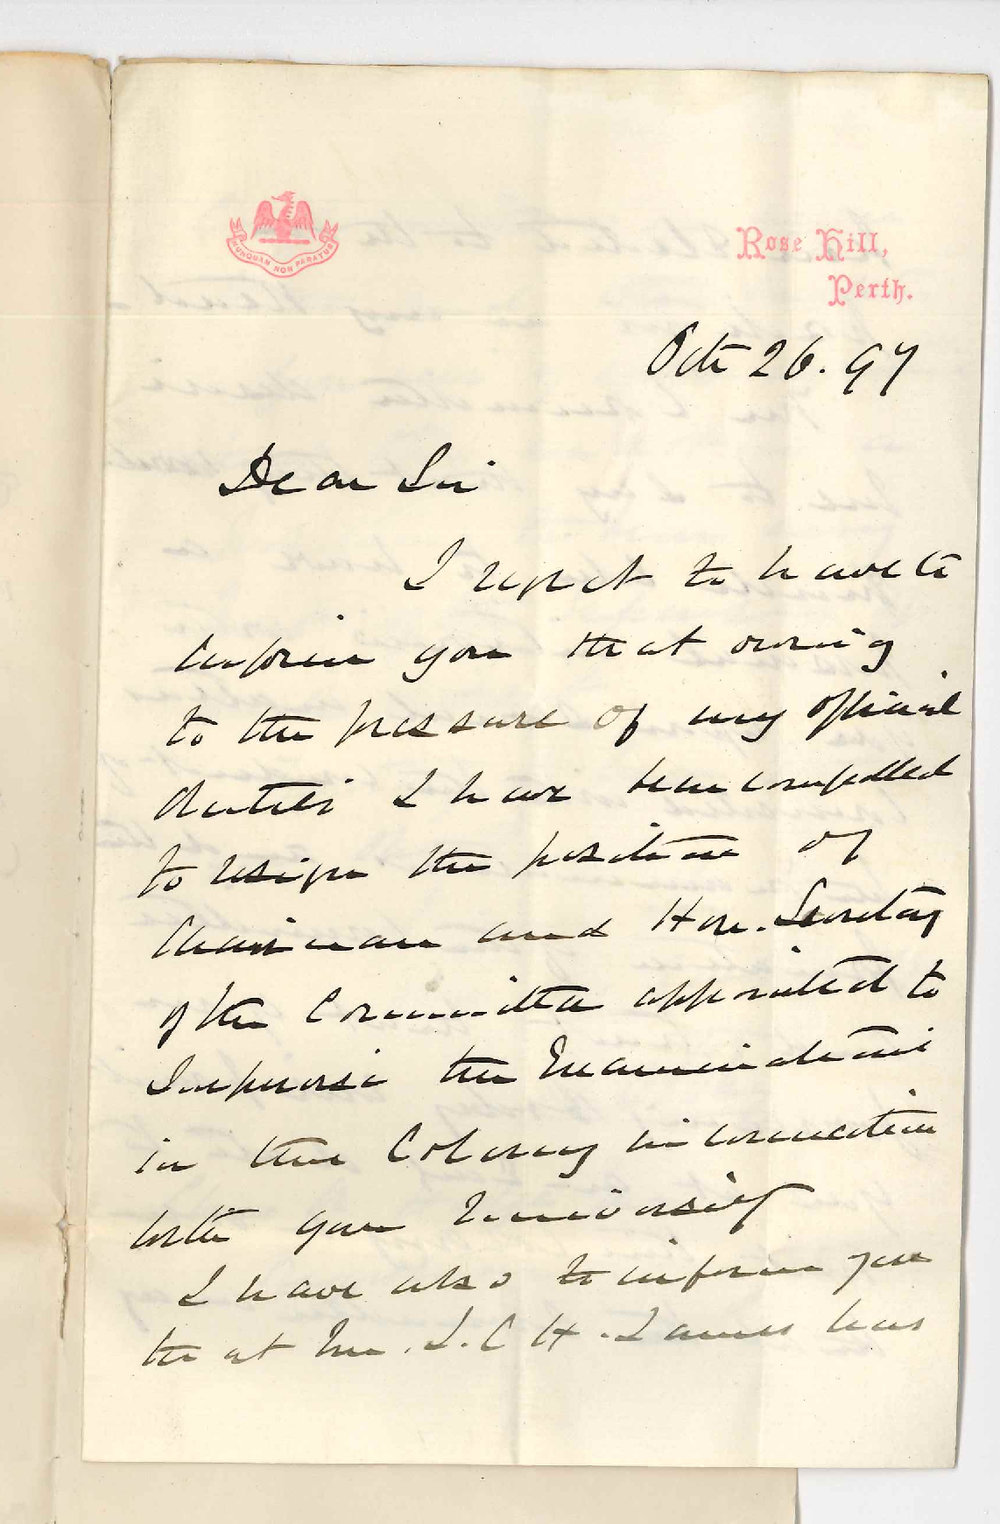 NUNQUAM NON PARATUS
Rose Hill,
Perth.
Octr 26. 97
Dear Sir
I regret to have to
inform you that owing
to the pressure of my official
duties I have been compelled
to resign the position of
Chairman and Hon. Secretary
of the Committee appointed to
Supervise the Examinations
in this Colony in connection
with your University
I have also to inform you
that Mr. J. C H. James has